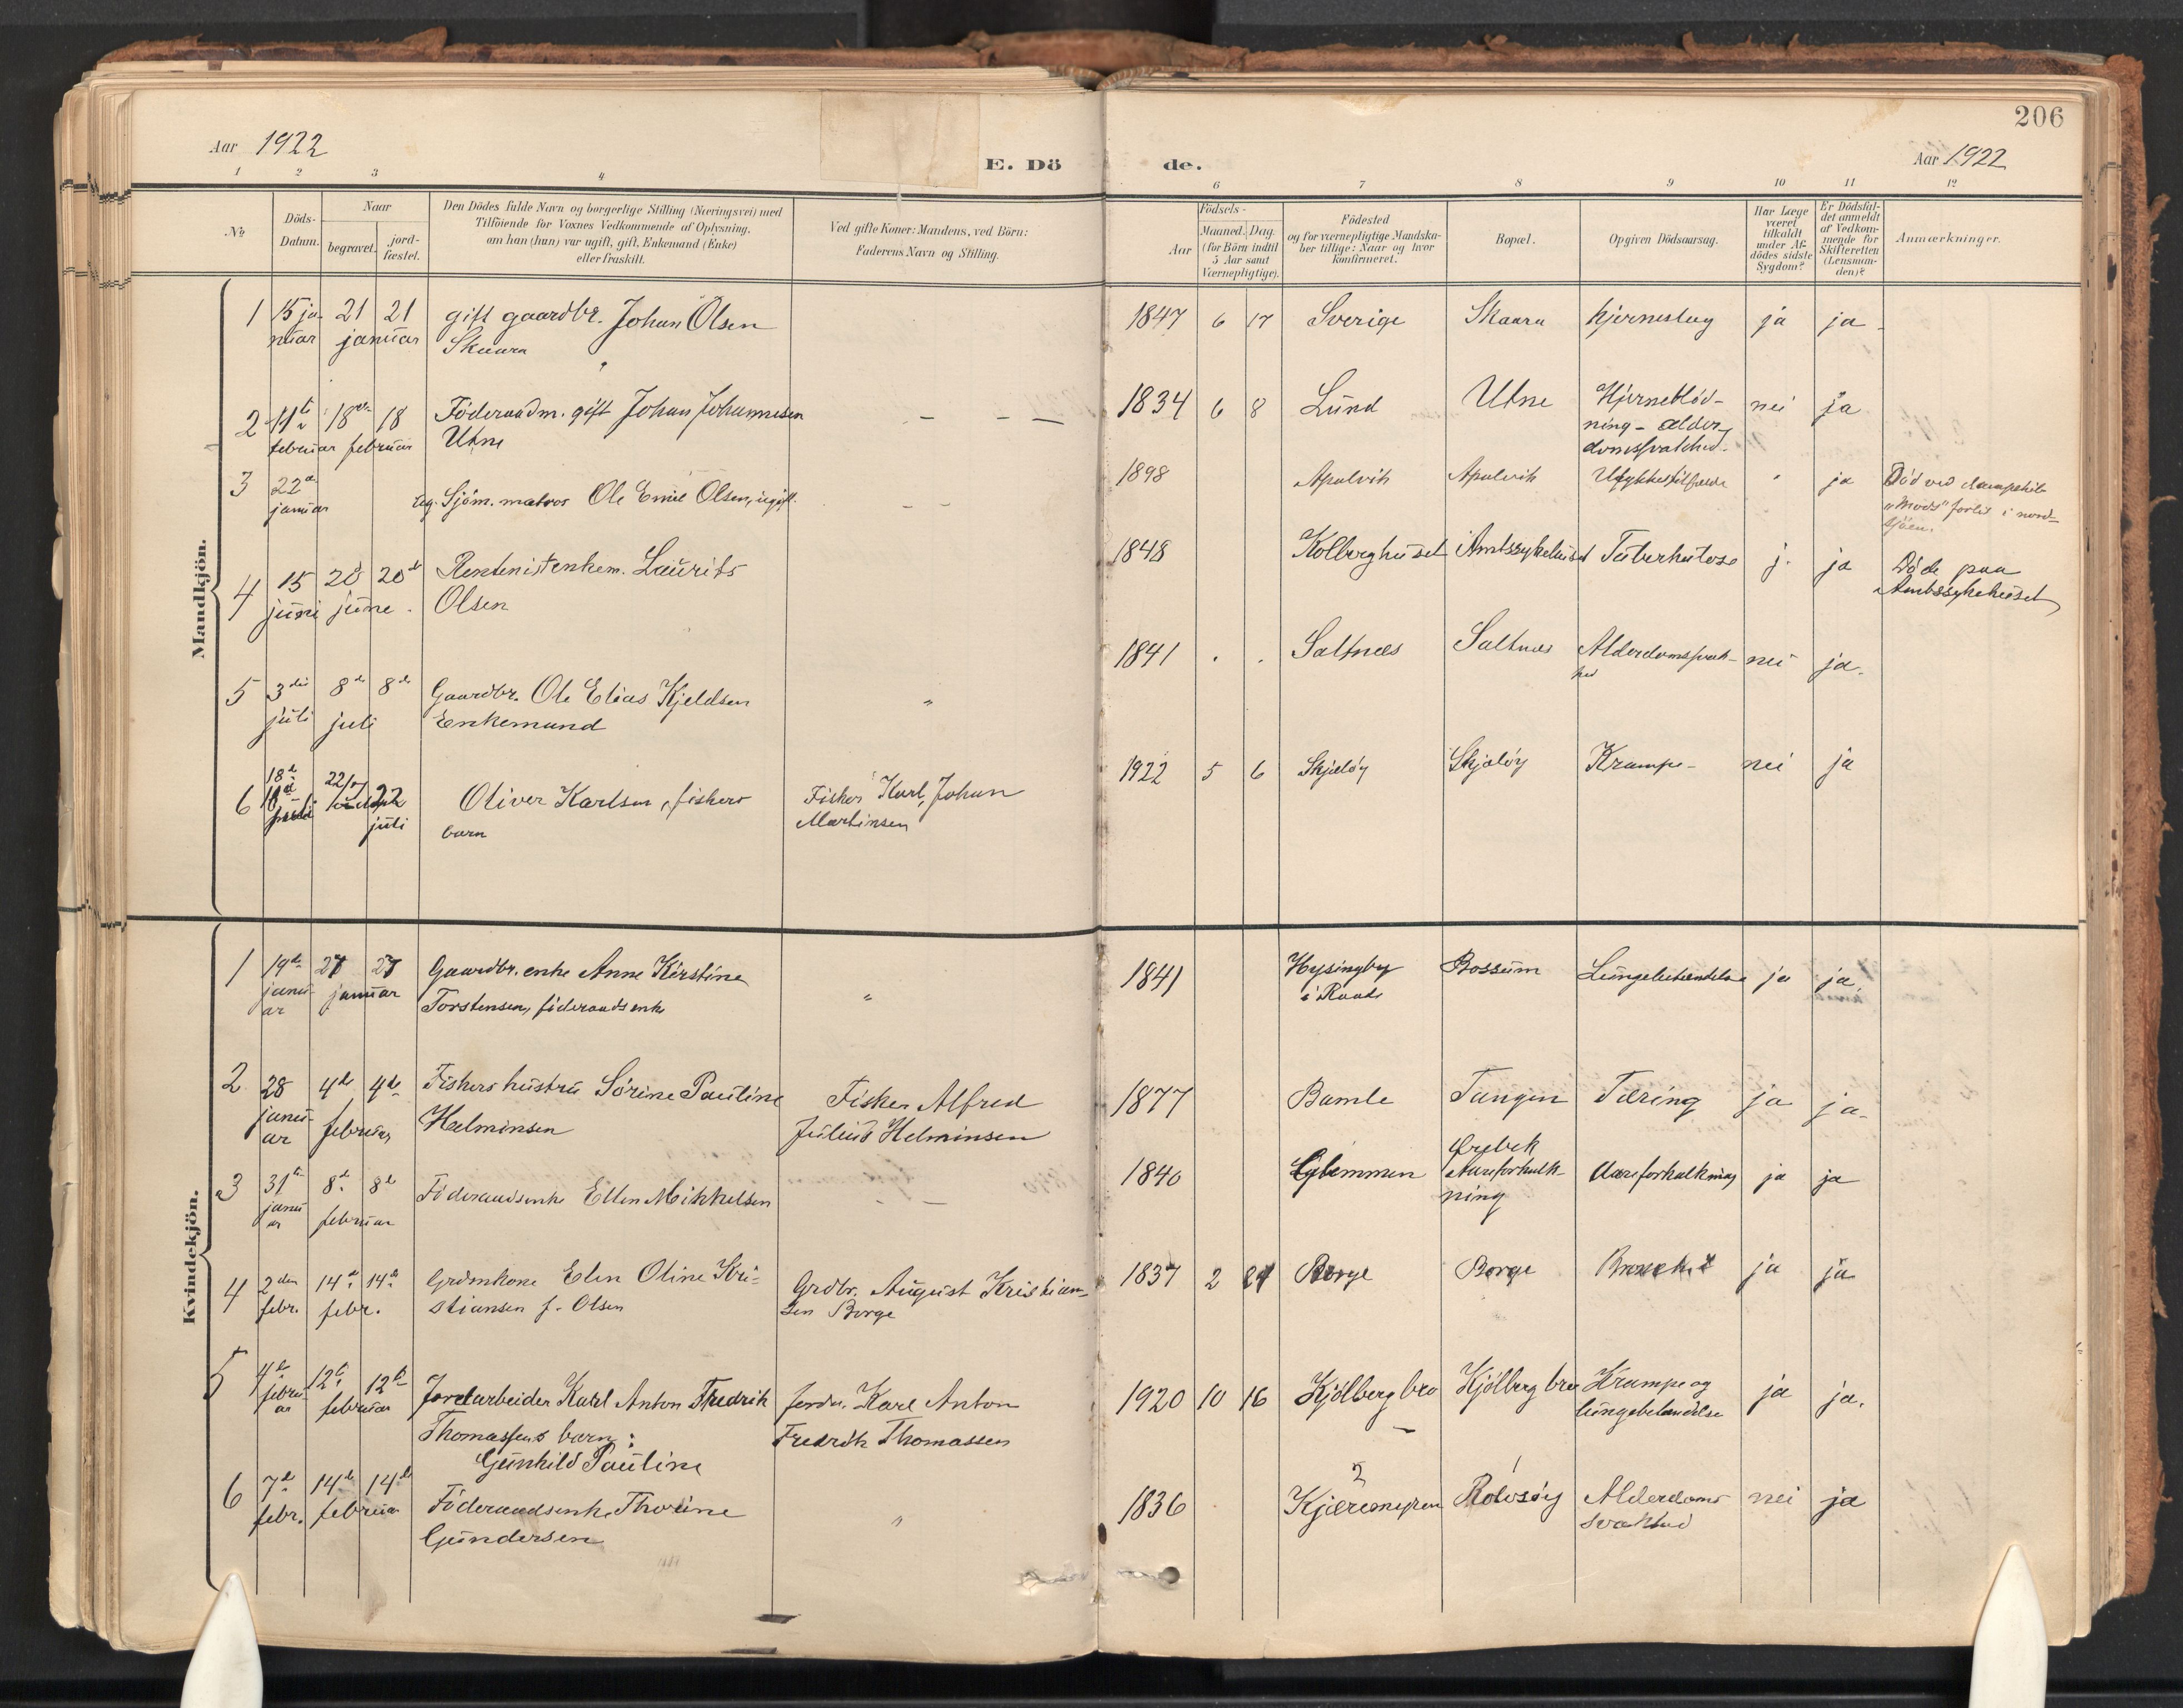 206
Aar 1922
E. Dö
de.
Aar 1922
1 2 3 4
6 7 8 9 10 11 12
No
Döds-
Datum.
Naar
begravet.
jord-
fæstet.
Den Dödes fulde Navn og borgerlige Stilling (Næringsvei) med
Tilföiende for Voxnes Vedkommende af Oplysning,
om han (hun) var ugift, gift, Enkemand (Enke)
eller fraskilt.
Ved gifte Koner: Mandens, ved Börn:
Faderens Navn og Stilling.
Födsels-
Aar
Maaned. Dag.
(for Börn indtil
5 Aar samt
Værnepligtige).
Födested
og for værnepligtige Mandska-
ber tillige: Naar og hvor
konfirmeret.
Bopæl.
Opgiven Dödsaarsag.
Har Læge
været
tilkaldt
under Af-
dödes sidste
Sygdom?
Er Dödsfal-
det anmeldt
af Vedkom-
mende for
Skifteretten
(Lensman-
den)?
Anmærkninger.
Mandkjön.
1 15 ja- 21 21 gift gaardbr. Johan Olsen 1847 6 17 Sverige Skaara hjerneslag ja ja
nuar januar Skaara
2 11te 18de 18 Föderaadm. gift Johan Johannesen — — — 1834 6 8 Lund Utne Hjerneblöd- nei ja
februar februar Utne ning - alder-
domssvakhed.
3 22de Sjöm. matros Ole Emil Olsen, ugift. — — 1898 Apalvik Apalvik Ulykkestilfælde " ja Död ved dampskib
januar "Mod's" forlis i nord-
sjöen.
4 15 20 20de Rentenist enkem. Laurits 1848 Kolberghuset Amtssykehuset Tuberkulose j. ja Döde paa
juni june. Olsen Amtssykehuset
5 3die 8de 8de Gaardbr. Ole Elias Kjeldsen " 1841 . . Saltnes Saltnes Alderdomssvak- nei ja.
juli juli Enkemand hed
6 18de 22/7 22 Oliver Karlsen, fiskers Fisker Karl Johan 1922 5 6 Skjælöy Skjælöy Krampe - nei ja
juli barn Martinsen
Kvindekjön.
1 19de 27 27 Gaardbr. enke Anne Kirstine " 1841 Hysingby Rossum Lungebetændelse ja ja.
janu- januar Torstensen, föderaadsenke i Raade
ar
2 28 4de 4de Fiskers hustru Sörine Pauline Fisker Alfred 1877 Bamle Tangen Tæring ja ja.
janu- februar Helminsen Julius Helminsen
ar
3 31te 8de 8de Föderaadsenke Ellen Mikkelsen — — 1840 Glemmen Örebek Aareforkalkning ja ja
janu- februar Aareforkalk-
ar ning
4 2den 14de 14de Grdmkone Elen Oline Kri- Grdbr. August Kristian- 1837 2 Borge Borge ja ja
febr. febr. stiansen f. Olsen sen Borge
5 4de 12te 12te Jordarbeider Karl Anton Fredrik Jorda. Karl Anton 1920 10 16 Kjölberg bro Kjölberg bro Krampe og ja ja.
febru- februar Thomassens barn: Fredrik Thomassen lungebetændelse
ar Gunhild Pauline
6 7de 14de 14de Föderaadsenke Thorine " 1836 Rolvsöy Alderdoms nei ja
febr. februar Gundersen svakhed